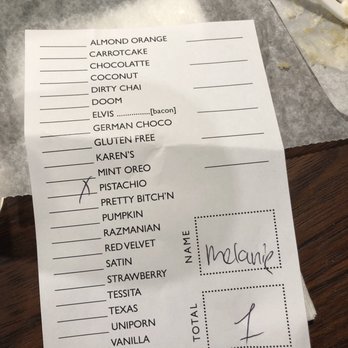 ALMOND ORANGE
CARROTCAKE
CHOCOLATTE
COCONUT
DIRTY CHAI
DOOM
ELVIS ................[bacon]
GERMAN CHOCO
GLUTEN FREE
KAREN'S
MINT OREO
X PISTACHIO
PRETTY BITCH'N
PUMPKIN
RAZMANIAN
RED VELVET
SATIN
STRAWBERRY
TESSITA
TEXAS
UNIPORN
VANILLA
NAME
melanie
TOTAL
1